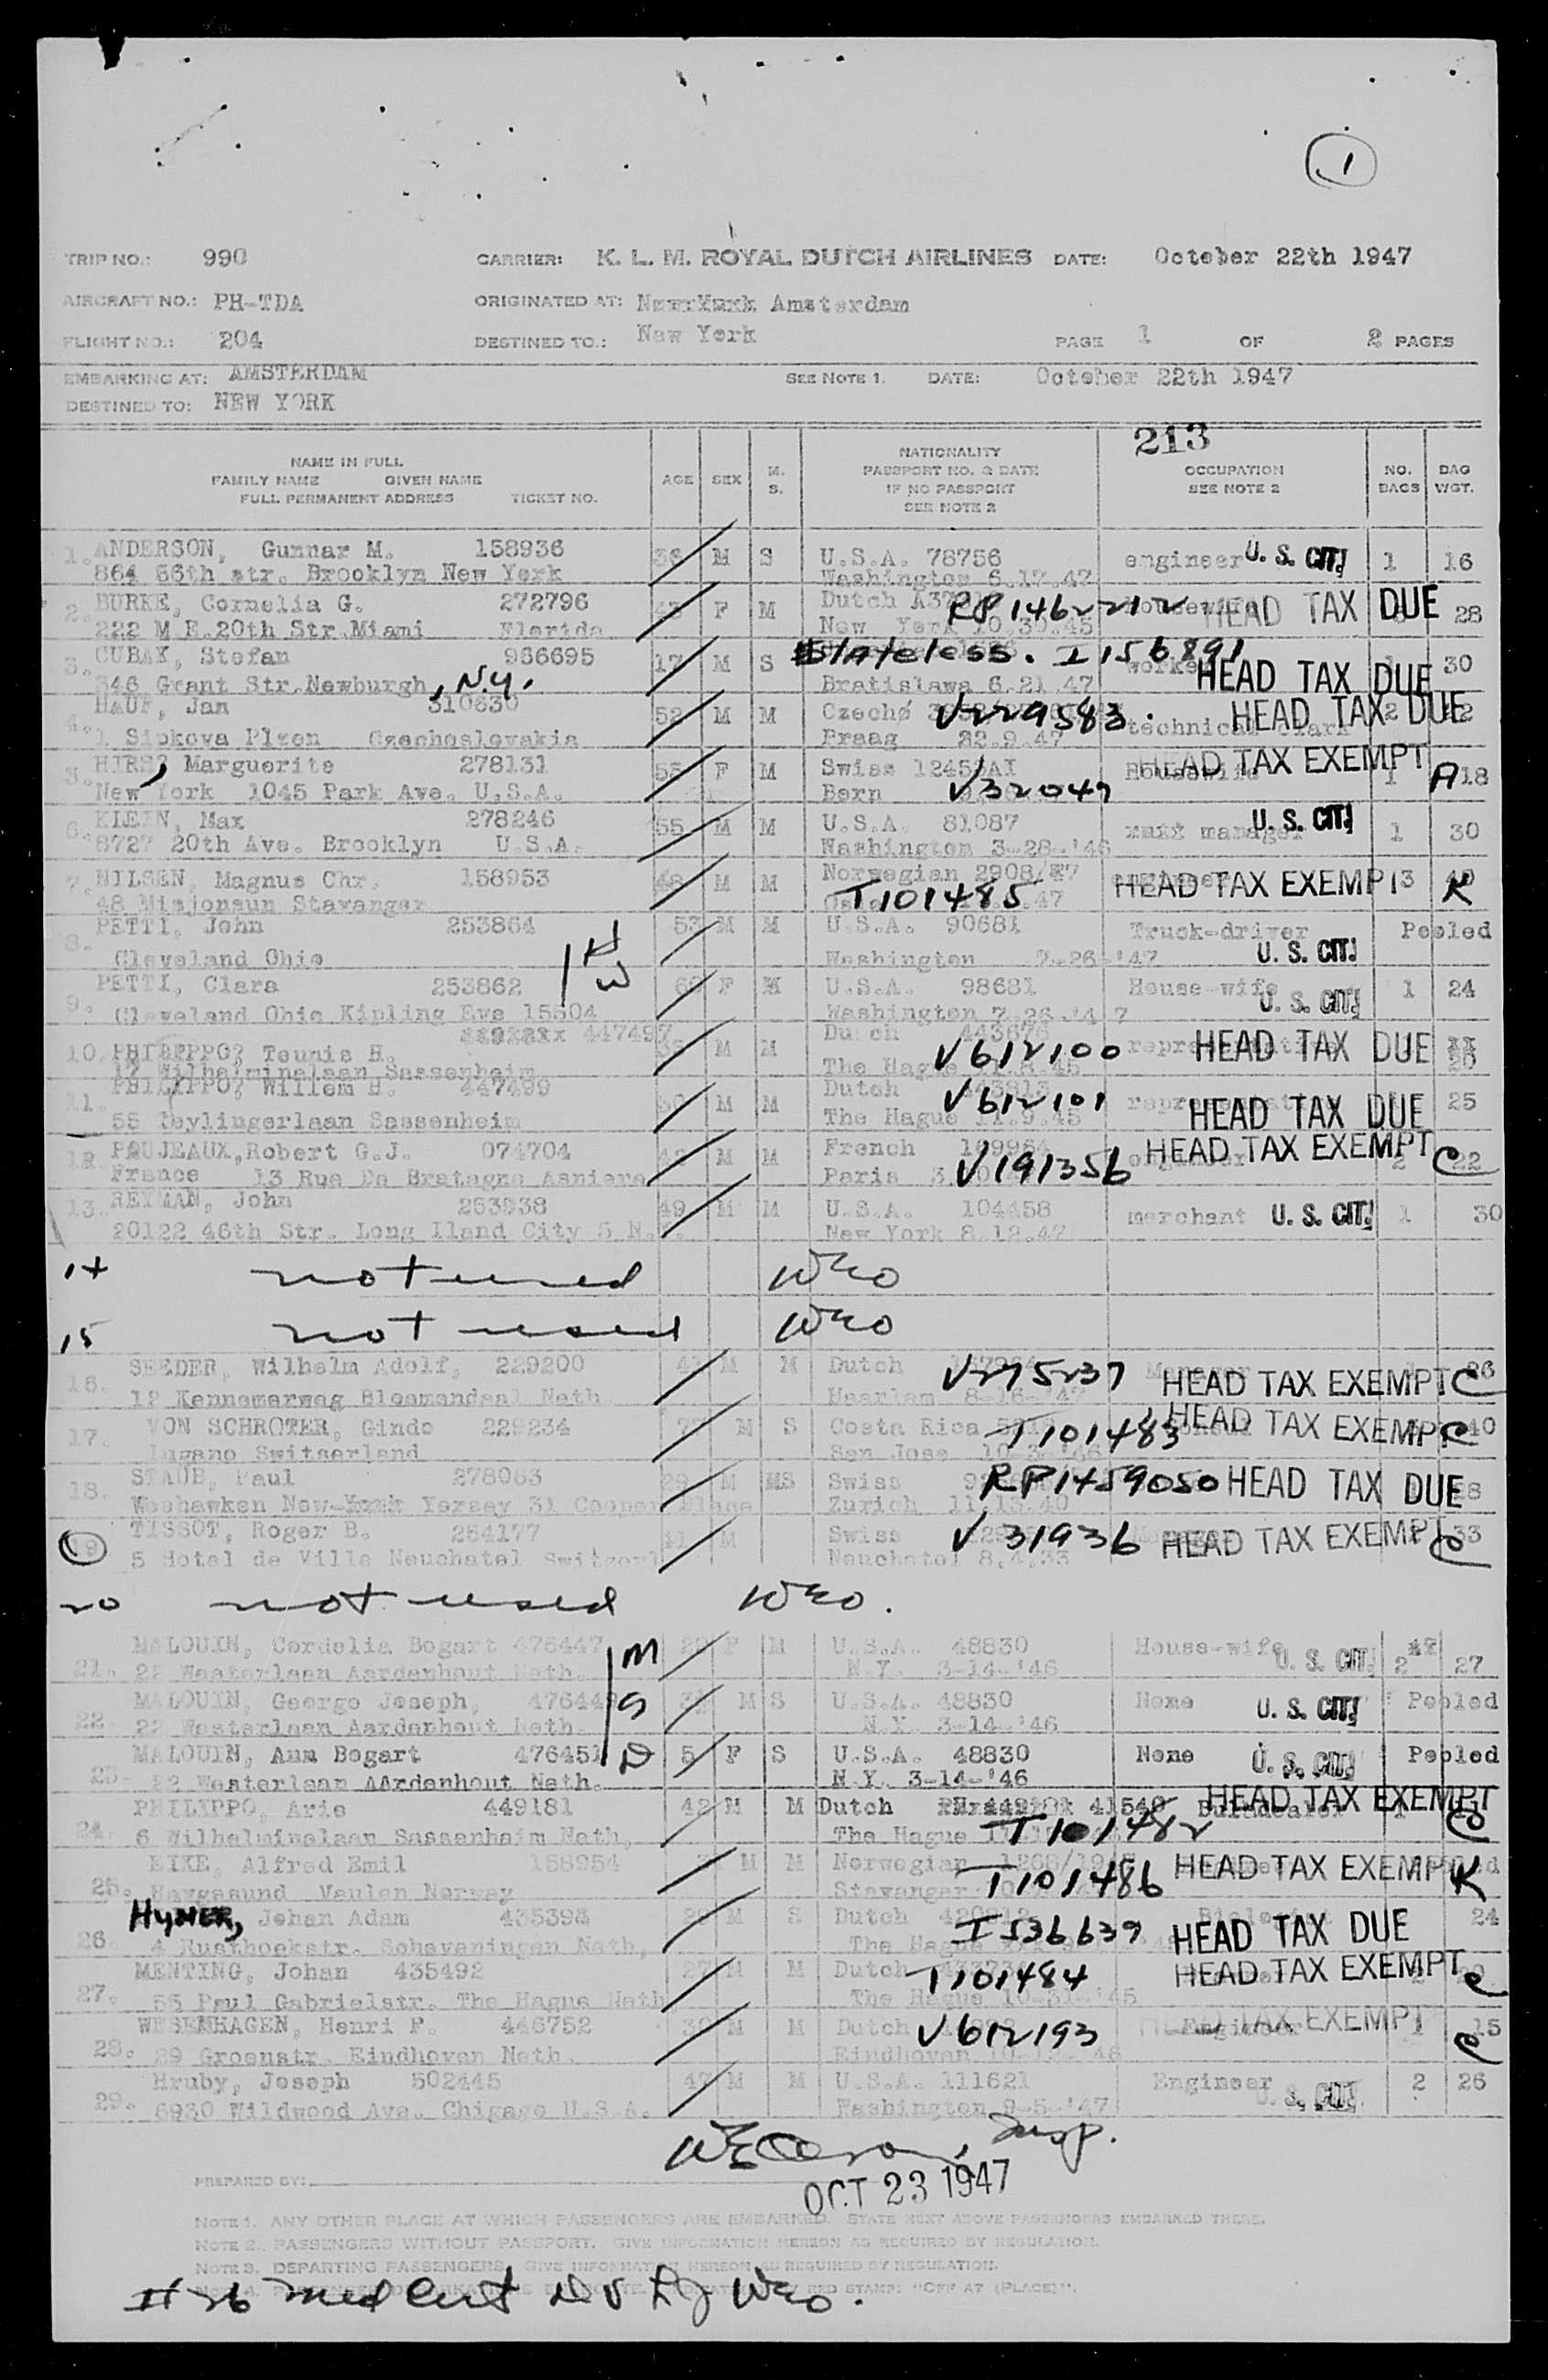 1
TRIP NO.: 990 CARRIER: K. L. M. ROYAL DUTCH AIRLINES DATE: October 22th 1947
AIRCRAFT NO.: PH-TDA ORIGINATED AT: New York Amsterdam
FLIGHT NO.: 204 DESTINED TO.: New York PAGE 1 OF 2 PAGES
EMBARKING AT: AMSTERDAM SEE NOTE 1. DATE: October 22th 1947
DESTINED TO: NEW YORK
213
NAME IN FULL
FAMILY NAME GIVEN NAME
FULL PERMANENT ADDRESS TICKET NO.
AGE SEX M. S.
NATIONALITY
PASSPORT NO. & DATE
IF NO PASSPORT
SEE NOTE 2
OCCUPATION
SEE NOTE 2
NO. BAGS
BAG WGT.
1. ANDERSON, Gunnar M. 158936 36 M S U.S.A. 78756 engineer U. S. CIT. 1 16
864 56th str. Brooklyn New York Washington 6.17.47
2. BURKE, Cornelia G. 272796 F M Dutch RP 1462212 HEAD TAX DUE 28
222 M.E.20th Str.Miami Florida New York 10.30.45
3. CUBAK, Stefan 966695 17 M S Stateless. I 156891 worker HEAD TAX DUE 30
346 Grant Str.Newburgh, N.Y. Bratislawa 6.21.47
4. HAUF, Jan 310630 52 M M Czecho V229583. technical HEAD TAX DUE
1 Sipkova Plzen Czechoslovakia Praag 22.9.47
5. HIRS? Marguerite 278131 55 F M Swiss 12459AI HEAD TAX EXEMPT 1 A 18
New York 1045 Park Ave. U.S.A. Bern V32049
6. KLEIN, Max 278246 55 M M U.S.A. 81087 manager U. S. CIT. 1 30
8727 20th Ave. Brooklyn U.S.A. Washington 3-28-'46
7. NILSEN, Magnus Chr. 158953 48 M M Norwegian 2908/47 HEAD TAX EXEMPT 3 K
48 Misjonsun Stavanger T101485 .47
8. PETTI, John 253864 H 53 M M U.S.A. 90681 Truck-driver Pooled
Cleveland Ohio Washington 7-26-'47 U. S. CIT.
9. PETTI, Clara 253862 W F M U.S.A. 98681 House-wife U. S. CIT. 1 24
Cleveland Ohio Kipling Eve 15504 Washington 7.26.'47
10. PHILIPPO? Teunis H. 447497 M M Dutch V612100 HEAD TAX DUE
17 Wilhelminalaan Sassenheim The Hague 11.8.45
11. PHILIPPO? Willem H. 447499 M M Dutch V612101 HEAD TAX DUE 25
55 Teylingerlaan Sassenheim The Hague 11.9.45
12. POUJEAUX, Robert G.J. 074704 M M French HEAD TAX EXEMPT C 22
France 13 Rue De Bratagne Asniers Paris V191356
13. REYMAN, John 253938 49 M M U.S.A. 104458 merchant U. S. CIT. 1 30
20122 46th Str. Long Iland City 5 N.Y. New York 8.12.47
14 not used WEO
15 not used WEO
16. SEEDER, Wilhelm Adolf, 229200 M M Dutch V275237 Manager HEAD TAX EXEMPT C 26
12 Kennemerweg Bloemendaal Neth Haarlem 8-16-'47
17. VON SCHROTER, Gindo 229234 M S Costa Rica T101483 HEAD TAX EXEMPT C 40
Lugano Switserland San Jose
18. STAUB, Paul 278063 29 M MS Swiss RP1459050 HEAD TAX DUE
Weehawken New York Yersey 31 Cooper Place Zurich 11.13.40
19 TISSOT, Roger B. 254177 41 M Swiss V 31936 HEAD TAX EXEMPT C 33
5 Hotel de Ville Neuchatel Switzerl Neuchatel 8.4.33
20 not used WEO.
21. MALOUIN, Cordelia Bogart 476447 M 29 F M U.S.A. 48830 House-wife U. S. CIT. 2 27
22 Westerlaan Aardenhout Neth. N.Y. 3-14-'46
22. MALOUIN, George Joseph, 476449 S M S U.S.A. 48830 None U. S. CIT. Pooled
22 Westerlaan Aardenhout Neth. N.Y. 3-14-'46
23. MALOUIN, Ann Bogart 476451 D 5 F S U.S.A. 48830 None U. S. CIT. Pooled
22 Westerlaan Aardenhout Neth. N.Y. 3-14-'46
24. PHILIPPO, Arie 449181 42 M M Dutch Bulbdealer HEAD TAX EXEMPT C
6 Wilhelminalaan Sassenheim Neth, The Hague T101482
25. EIKE, Alfred Emil 158954 M M Norwegian T101486 HEAD TAX EXEMPT K
Haugesund Vaulen Norway Stavanger
26. HYMER, Johan Adam 435394 M S Dutch I536639 HEAD TAX DUE 24
4 Rusthoekstr. Schaveningen Neth, The Hague
27. MENTING, Johan 435492 27 M M Dutch T101484 HEAD TAX EXEMPT C
55 Paul Gabrielstr. The Hague Neth The Hague 10-31-'45
28. WESENHAGEN, Henri F. 446752 M M Dutch V612193 Engineer HEAD TAX EXEMPT 1 C 15
29 Groenstr. Eindhoven Neth. Eindhoven
29. Hruby, Joseph 502445 47 M M U.S.A. 111621 Engineer U. S. CIT. 2 26
6930 Wildwood Ave. Chigago U.S.A. Washington 9-5-'47
WE Olson, Insp.
PREPARED BY: OCT 23 1947
NOTE 1. ANY OTHER PLACE AT WHICH PASSENGERS ARE EMBARKED. STATE NEXT ABOVE PASSENGERS EMBARKED THERE.
NOTE 2. PASSENGERS WITHOUT PASSPORT. GIVE INFORMATION HEREON AS REQUIRED BY REGULATION.
NOTE 3. DEPARTING PASSENGERS, GIVE INFORMATION HEREON AS REQUIRED BY REGULATION.
RED STAMP: "OFF AT (PLACE)".
# 26 Med Cert WEO.